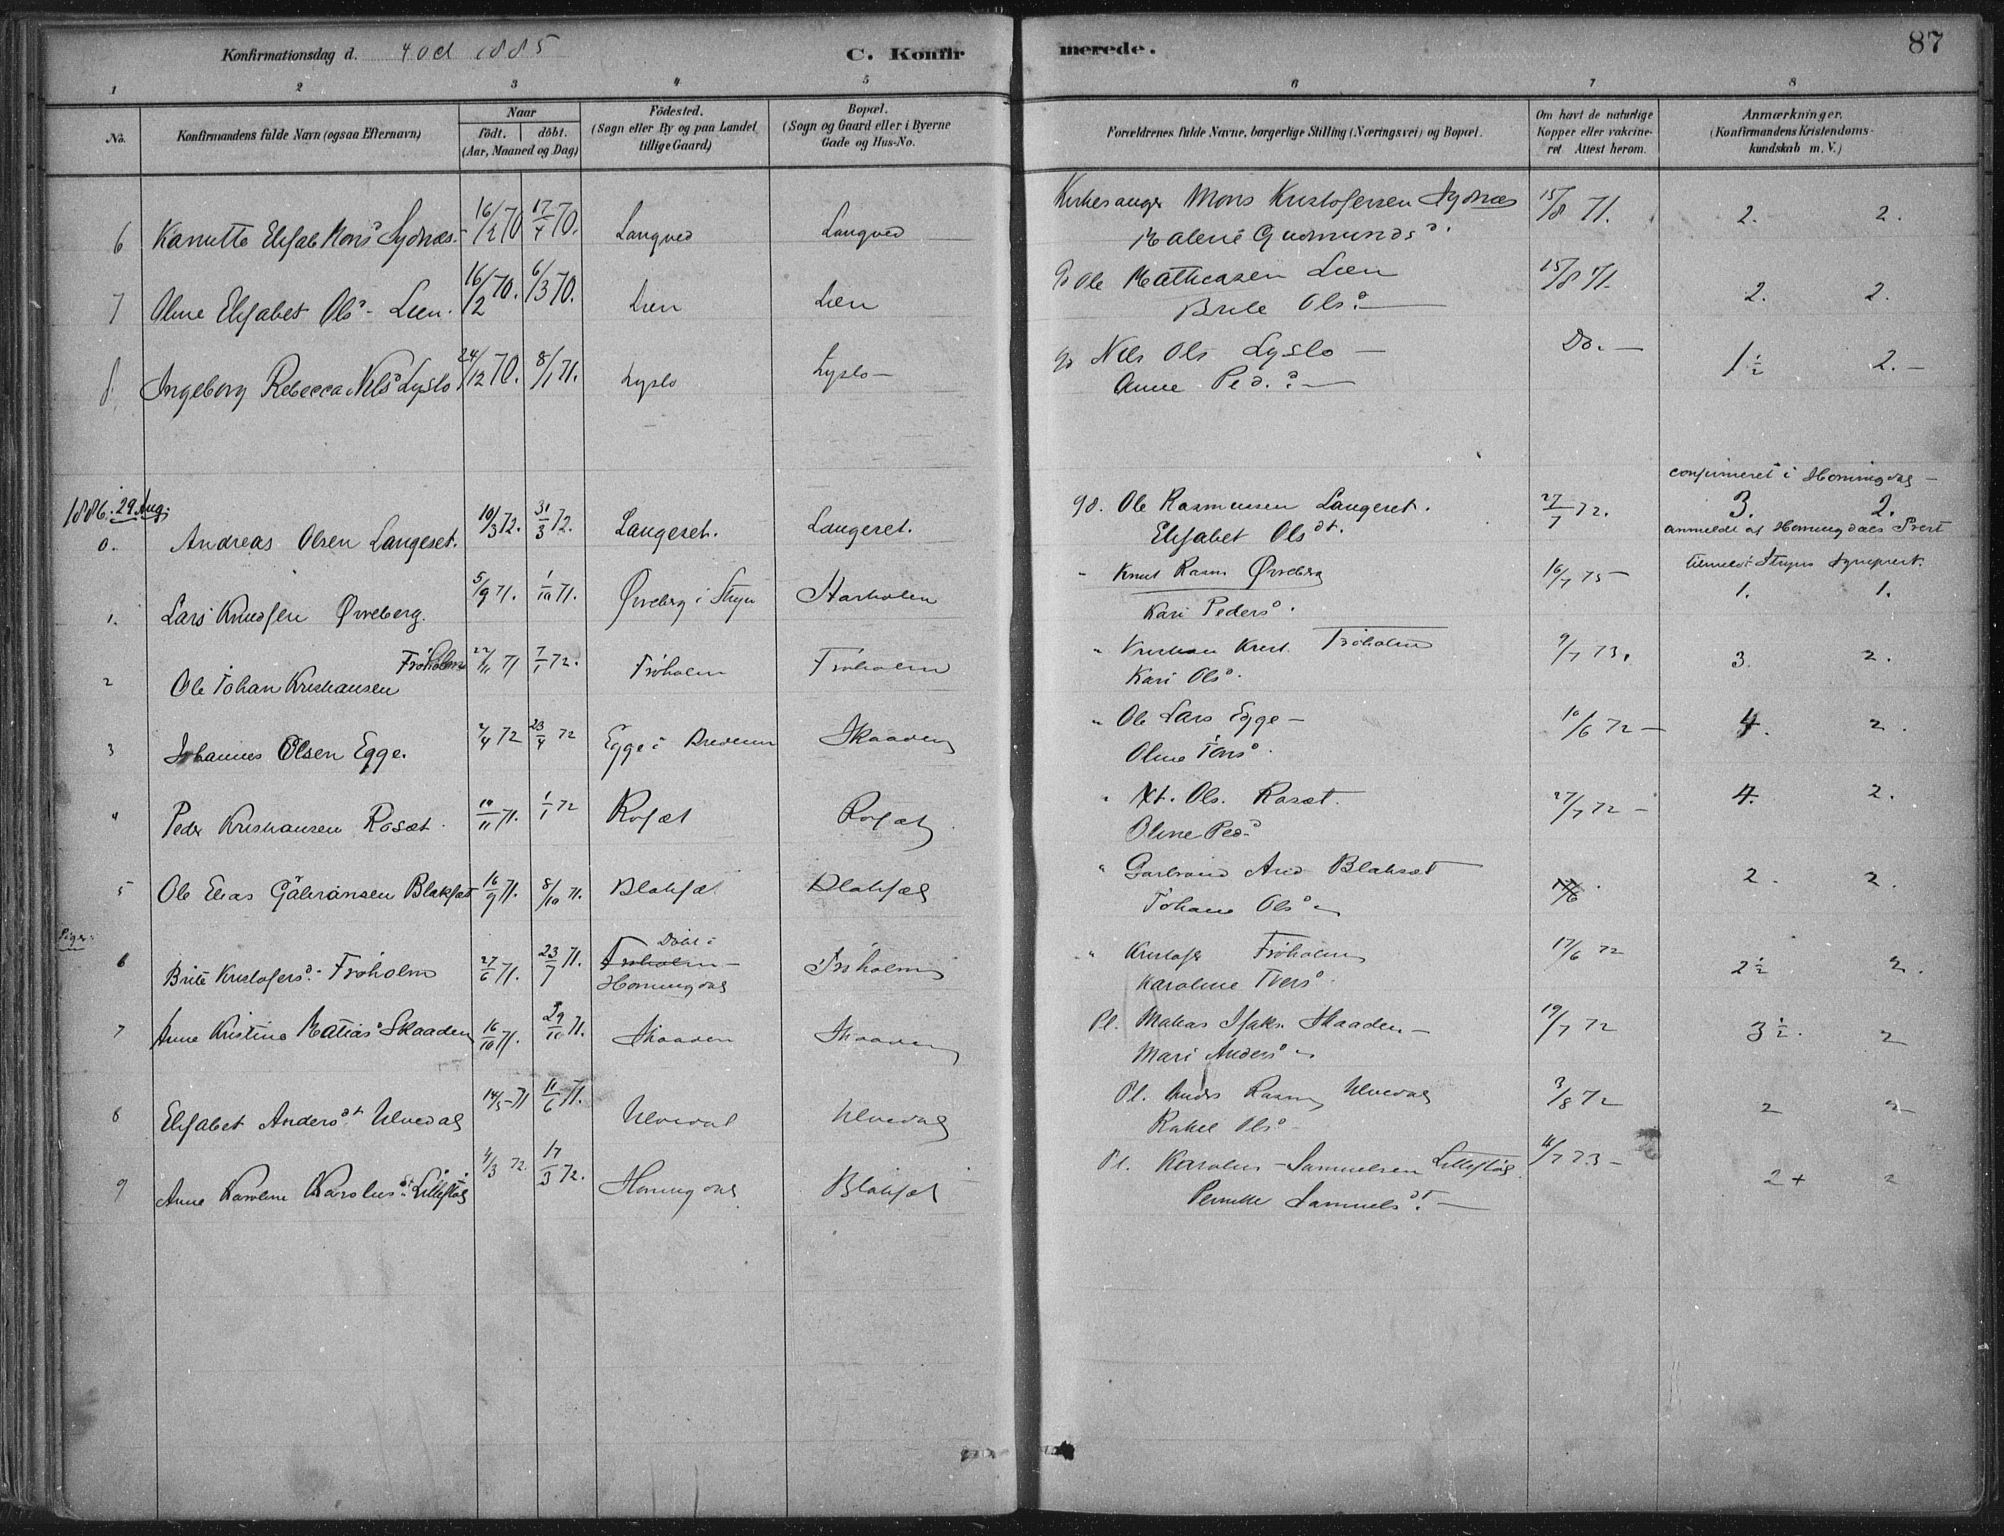 Konfirmationsdag d. 4 Oct 1885 C. Konfirmerede. 87
1 2 3 4 5 6 7 8
No. Konfirmandens fulde Navn (ogsaa Efternavn) Naar födt. döbt. (Aar, Maaned og Dag) Födested. (Sogn eller By og paa Landet tillige Gaard) Bopæl. (Sogn og Gaard eller i Byerne Gade og Hus-No. Forældrenes fulde Navne, borgerlige Stilling (Næringsvei) og Bopæl. Om havt de naturlige Kopper eller vakcineret. Attest herom. Anmærkninger. (Konfirmandens Kristendomskundskab m. V.)
6 Elisab. Mons d. Sydnæs 16/2 70 17/4 70. Langved Langved Kirkesanger Mons Kristofersen Sydnæs 15/8 71. 2. 2.
Malene Gudmunds d.
7 Oline Elisabet Ols d. Lien. 16/2 70. 6/3 70. Lien Lien Ole Matheasen Lien 15/8 71. 2. 2.
Brite Ols d.
8. Ingeborg Rebecca Nels d. Lyslo 24/12 70. 8/1 71. Lyslo Lyslo Nels Ols Lyslo Do. 1 1/2 2.
Anne Ped. d.
confirmeret i Horningdal
1886. 29 Aug:
0. Andreas Olsen Langeset. 10/3 72. 31/3 72. Langeset. Langeset. Ole Rasmussen Langeset. 27/7 72. 3. 2.
Elisabet Ols dt. anmeldt af Horningdals Prest
tilmeldt Stryns Sognprest.
1. Lars Knudsen Övreberg. 5/9 71. 1/10 71. Övreberg i Stryn Starholen " Knut Rasm Övreberg 16/7 75 1. 1.
Kari Peders d.
2 Ole Johan Kristiansen Fröholm 22/11 71 7/1 72. Fröholm Fröholm " Kristian Krist. Fröholm 9/7 73. 3. 2.
Kari Ols d.
3 Johannes Olsen Egge. 2/4 72 23/4 72 Egge i Skaaden " Ole Lars Egge 10/6 72 4. 2.
4 Peder Kristiansen Rosæt. 10/11 71. 1/1 72 Rosæt Rosæt " Kt. Ols. Rosæt. 27/7 72 4. 2.
Oline Ped. d.
5 Ole Elias Blaksæt 16/9 71. 8/10 71. Blaksæt Blaksæt " And Blaksæt 2. 2.
Johane Ols d.
Piger:
6 Brite Kristofers d. Fröholm 27/6 71. 23/7 71. Döbt i Horningdal Fröholm " Kristofer Fröholm 17/6 72 2 1/2 2.
Karoline Ivers d.
7 Anne Kristine Matias d. Skaaden 16/10 71. 29/10 71. Skaaden Skaaden Pl. Matias Isaks. Skaaden 19/7 72 3 1/2. 2
Mari Anders d.
8 Elisabet Anders dt Ulvedal 14/5 71 11/6 71. Ulvedal Ulvedal Pl. Anders Rasm Ulvedal 3/8 72 2 2
Rakel Ols d.
9 Anne Karoline Karolus dt. Lilletög 4/3 72. 17/3 72. Horningdal Blaksæt Pl. Karolus Samuelsen Lilletög 11/7 73 2+ 2
Pernille Samuels dt.